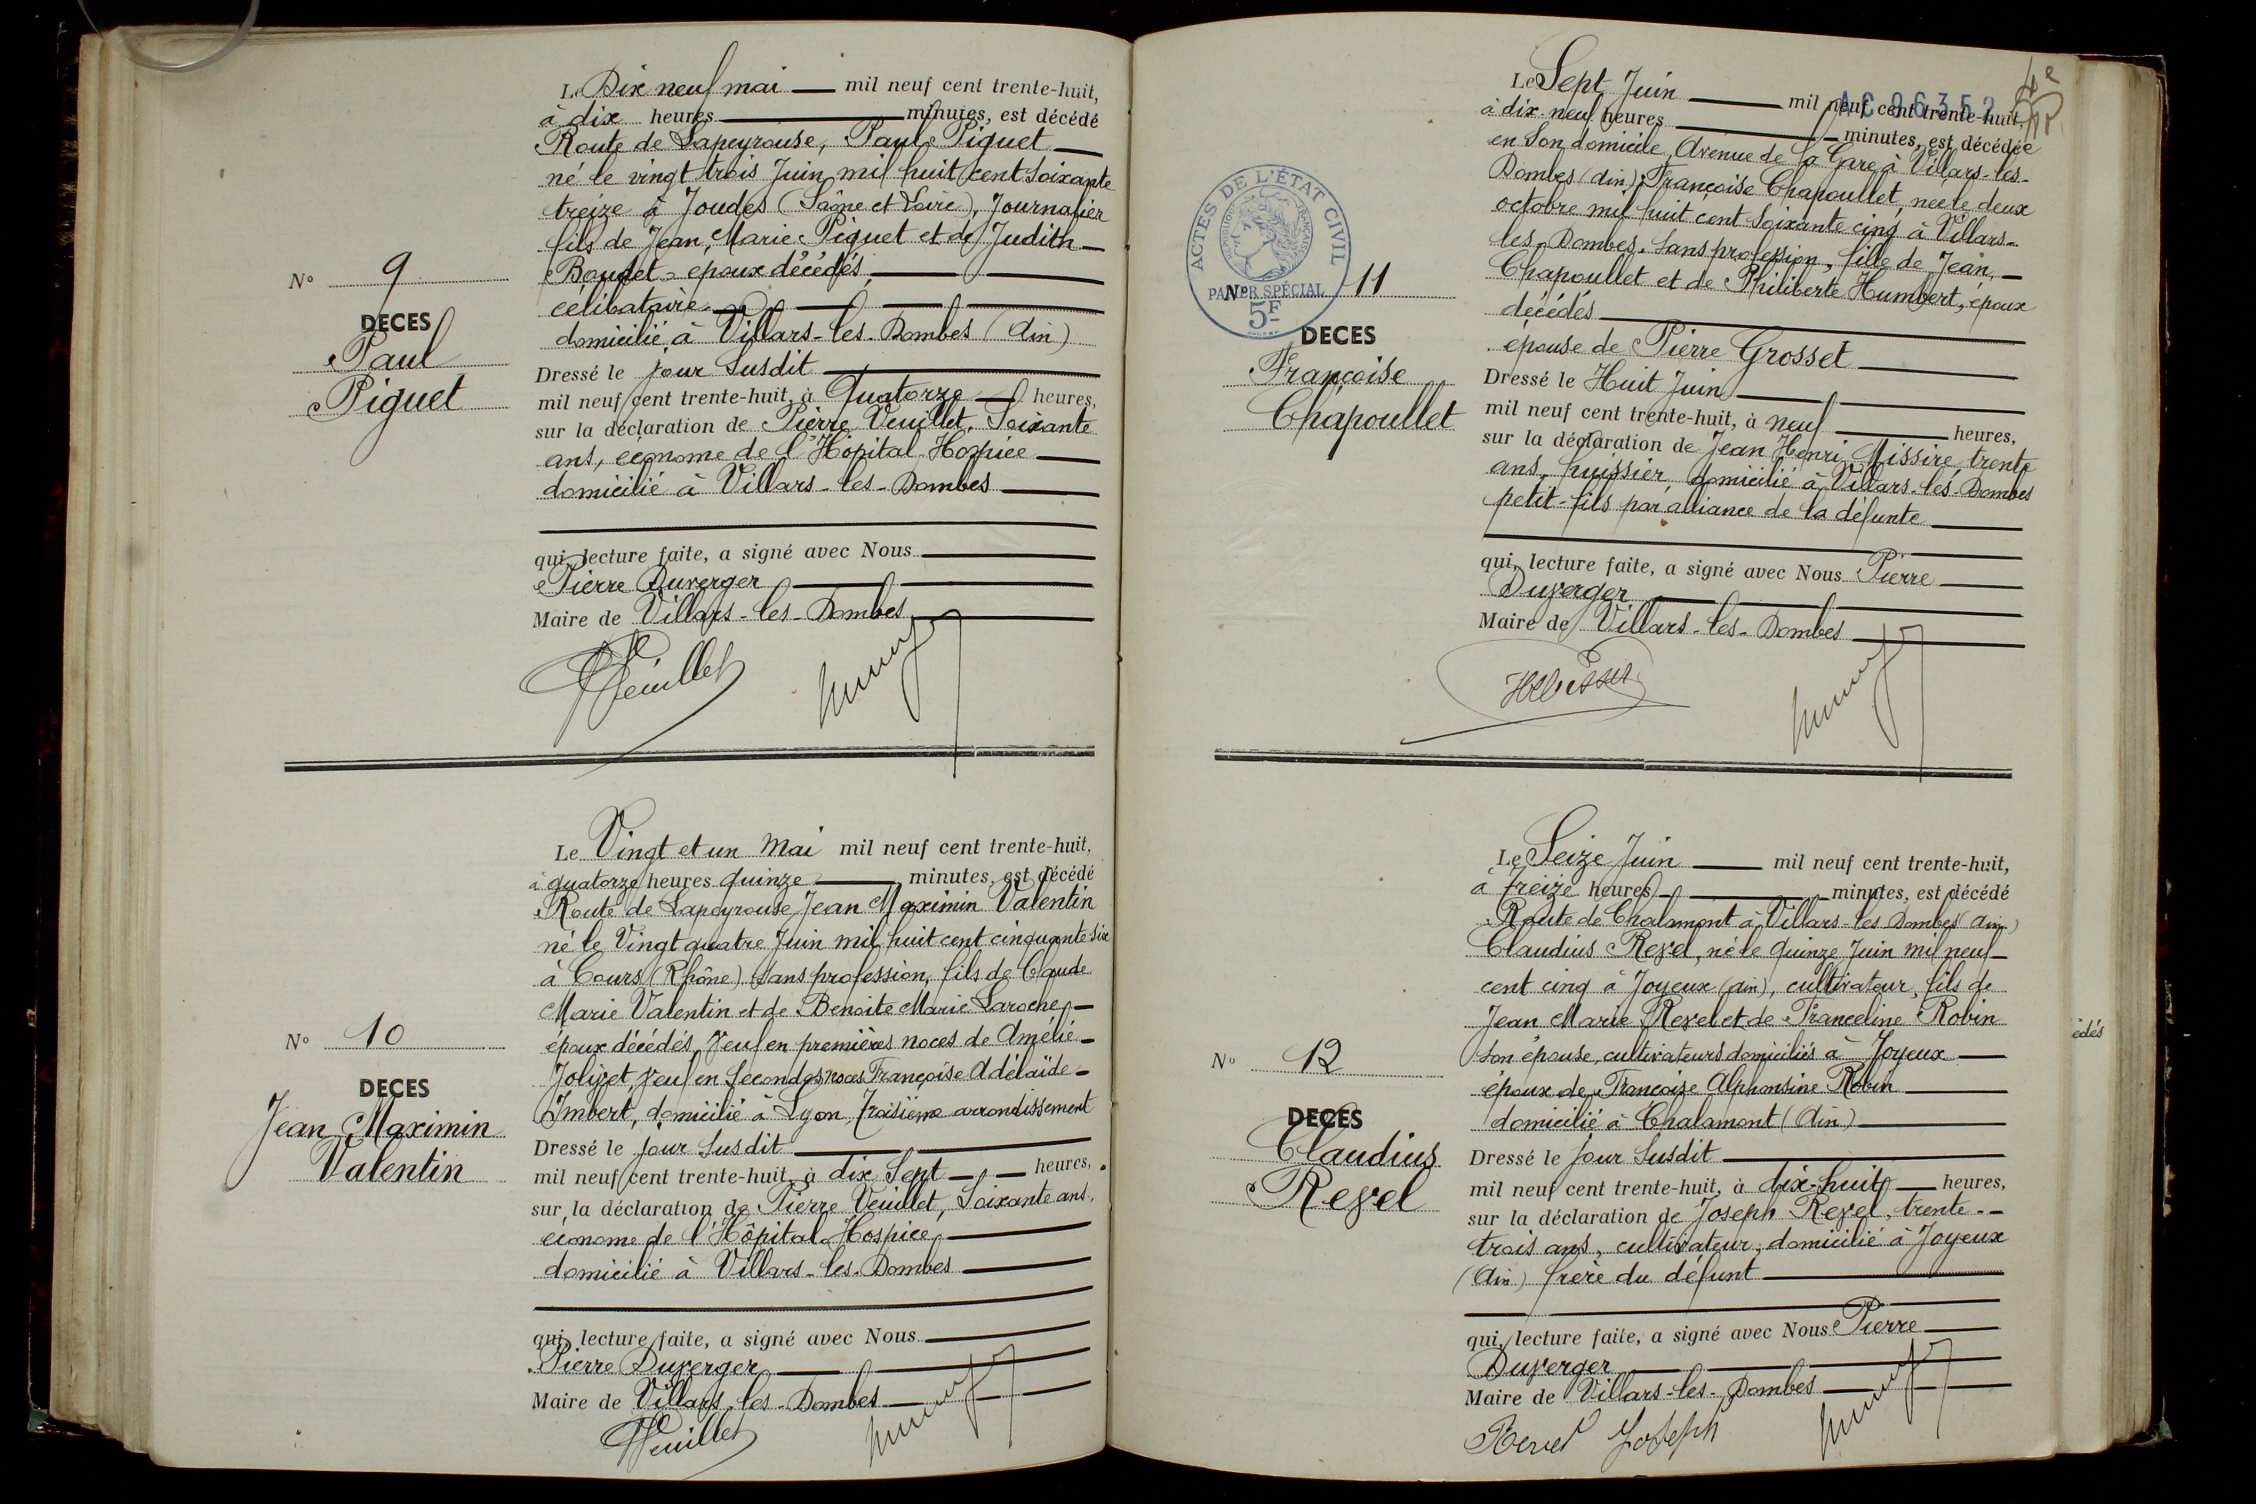 Le Dix neuf mai mil neuf cent trente-huit,
à dix heures minutes, est décédé
Route de Lapeyrouse, Paul Piguet
né le vingt trois Juin mil huit cent soixante
treize à Joudes (Saône et Loire), Journalier
fils de Jean Marie Piguet et de Judith
époux décédés
célibataire
domicilié à Villars-les-Dombes (Ain)
Dressé le jour susdit
mil neuf cent trente-huit, à Quatorze heures,
sur la déclaration de Pierre Veuillet, Soixante
ans, économe de l'Hôpital-Hospice
domicilié à Villars-les-Dombes
qui, lecture faite, a signé avec Nous
Pierre Duverger
Maire de Villars-les-Dombes
Veuillet
N° 9
DECES
Paul
Piguet
Le Vingt et un Mai mil neuf cent trente-huit,
à quatorze heures quinze minutes, est décédé
Route de Lapeyrouse Jean Maximin Valentin
né le Vingt quatre Juin mil huit cent cinquante six
à Cours (Rhône) sans profession, fils de Claude
Marie Valentin et de Benoite Marie Laroche,
époux décédés, veuf en premières noces de Amélie
veuf en secondes noces Françoise Adélaïde
Imbert, domicilié à Lyon, troisième arrondissement
Dressé le jour susdit
mil neuf cent trente-huit, à dix sept heures,
sur la déclaration de Pierre Veuillet, Soixante ans,
économe de l'Hôpital-Hospice,
domicilié à Villars-les-Dombes
qui, lecture faite, a signé avec Nous
Pierre Duverger
Maire de Villars-les-Dombes
Veuillet
N° 10
DECES
Jean Maximin
Valentin
4e
AC 86352
ACTES DE L'ÉTAT CIVIL
RÉPUBLIQUE FRANÇAISE
PAPIER SPÉCIAL
5F
Le Sept Juin mil neuf cent trente-huit,
à dix-neuf heures minutes, est décédée
en son domicile, Avenue de la Gare à Villars-les-
Dombes (Ain), Françoise Chapoullet, née le deux
octobre mil huit cent soixante cinq à Villars-
les-Dombes, sans profession, fille de Jean
Chapoullet et de Philiberte Humbert, époux
décédés
épouse de Pierre Grosset
Dressé le Huit Juin
mil neuf cent trente-huit, à neuf heures,
sur la déclaration de Jean Henri Missire, trente
ans, huissier, domicilié à Villars-les-Dombes
petit-fils par alliance de la défunte
qui, lecture faite, a signé avec Nous Pierre
Duverger
Maire de Villars-les-Dombes
N° 11
DECES
Françoise
Chapoullet
Le Seize Juin mil neuf cent trente-huit,
à treize heures minutes, est décédé
Route de Chalamont à Villars-les-Dombes (Ain)
Claudius Revel, né le quinze Juin mil neuf
cent cinq à Joyeux (Ain), cultivateur, fils de
Jean Marie Revel et de Franceline Robin
son épouse, cultivateurs domiciliés à Joyeux
époux de Françoise Alphonsine Robin
domicilié à Chalamont (Ain)
Dressé le jour susdit
mil neuf cent trente-huit, à dix-huit heures,
sur la déclaration de Joseph Revel, trente-
trois ans, cultivateur, domicilié à Joyeux
(Ain) frère du défunt
qui, lecture faite, a signé avec Nous Pierre
Duverger
Maire de Villars-les-Dombes
Revel Joseph
N° 12
DECES
Claudius
Revel
édés